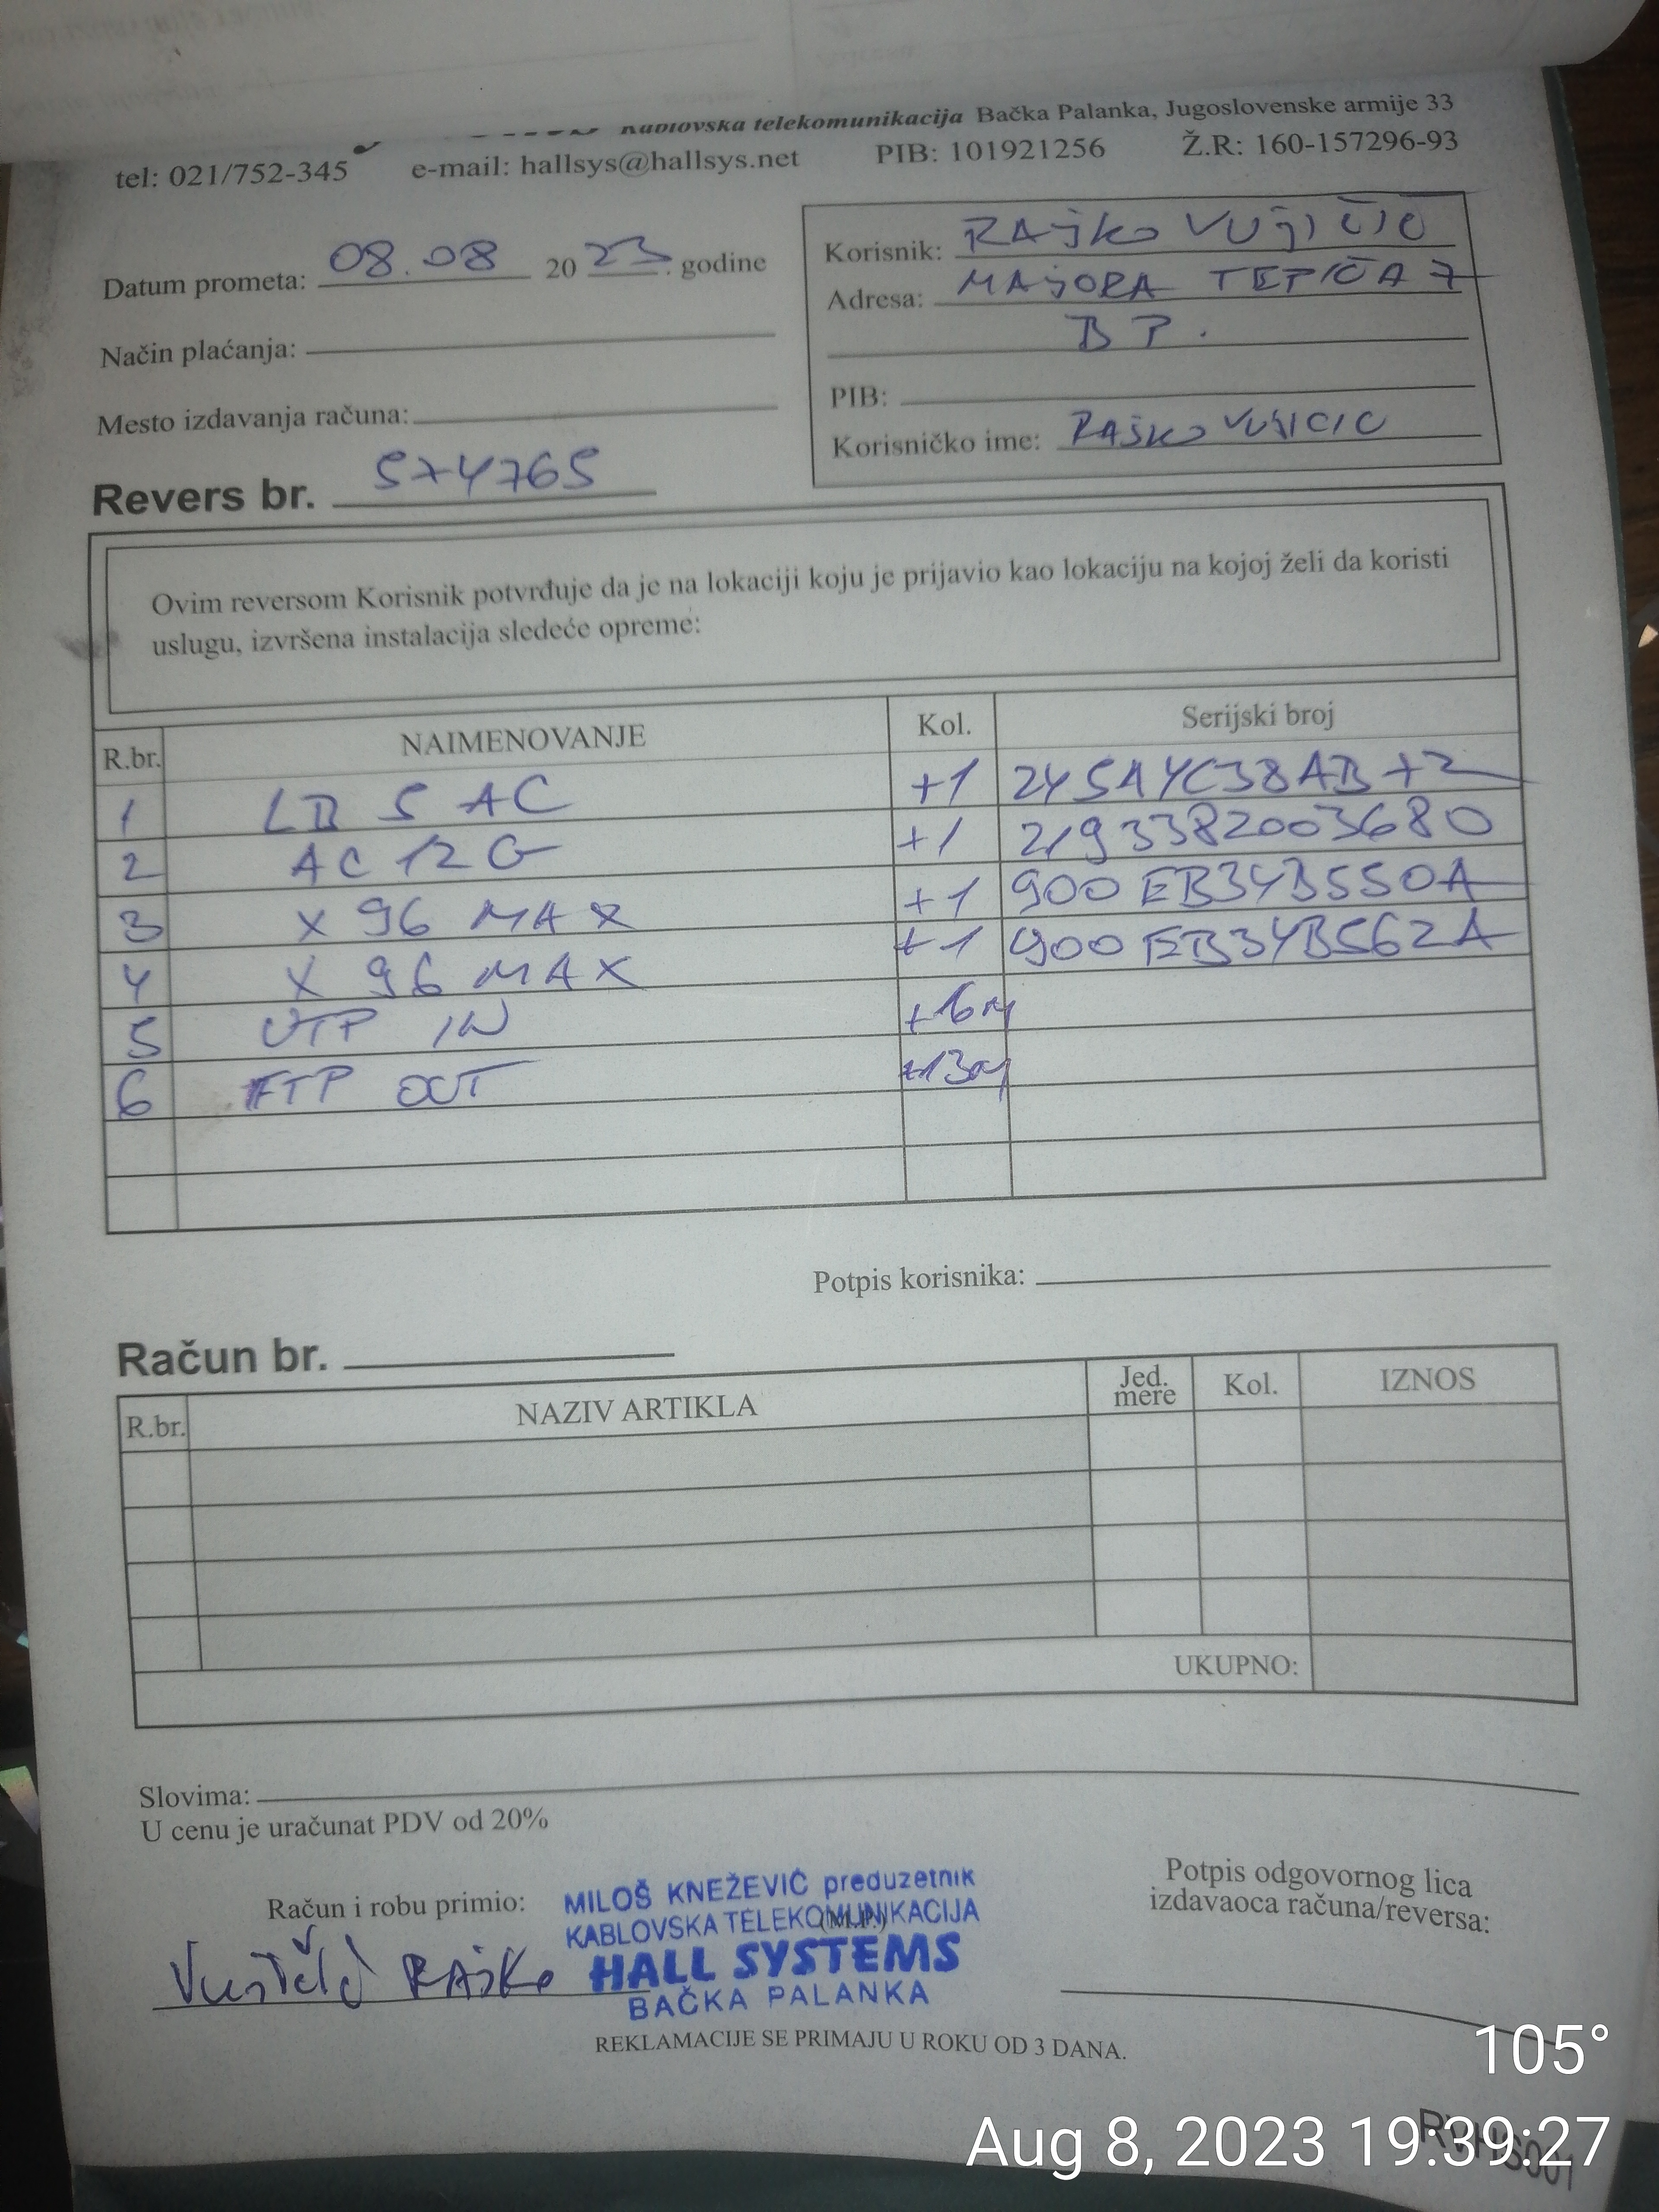 Kablovska telekomunikacija Bačka Palanka, Jugoslovenske armije 33
tel: 021/752-345 e-mail: hallsys@hallsys.net PIB: 101921256 Ž.R: 160-157296-93
Datum prometa: 08.08 2023. godine
Korisnik: RAJKO VUJIČIĆ
Adresa: MAJORA TEPIĆA 7
B P.
Način plaćanja:
PIB:
Mesto izdavanja računa:
Korisničko ime: RAJKO VUJICIC
Revers br. 574765
Ovim reversom Korisnik potvrđuje da je na lokaciji koju je prijavio kao lokaciju na kojoj želi da koristi
uslugu, izvršena instalacija sledeće opreme:
R.br. NAIMENOVANJE Kol. Serijski broj
1 LB 5 AC +1
2 AC 12 G +1 2193382003680
3 X 96 MAX +1 900EB34B550A
4 X 96 MAX +1 900EB34B562A
5 UTP IN
6 FTP OUT
Potpis korisnika:
Račun br.
R.br. NAZIV ARTIKLA Jed. mere Kol. IZNOS
UKUPNO:
Slovima:
U cenu je uračunat PDV od 20%
Račun i robu primio:
MILOŠ KNEŽEVIĆ preduzetnik
KABLOVSKA TELEKOMUNIKACIJA
(M.P.)
HALL SYSTEMS
BAČKA PALANKA
Potpis odgovornog lica
izdavaoca računa/reversa:
RAJKO
REKLAMACIJE SE PRIMAJU U ROKU OD 3 DANA.
105°
Aug 8, 2023 19:39:27